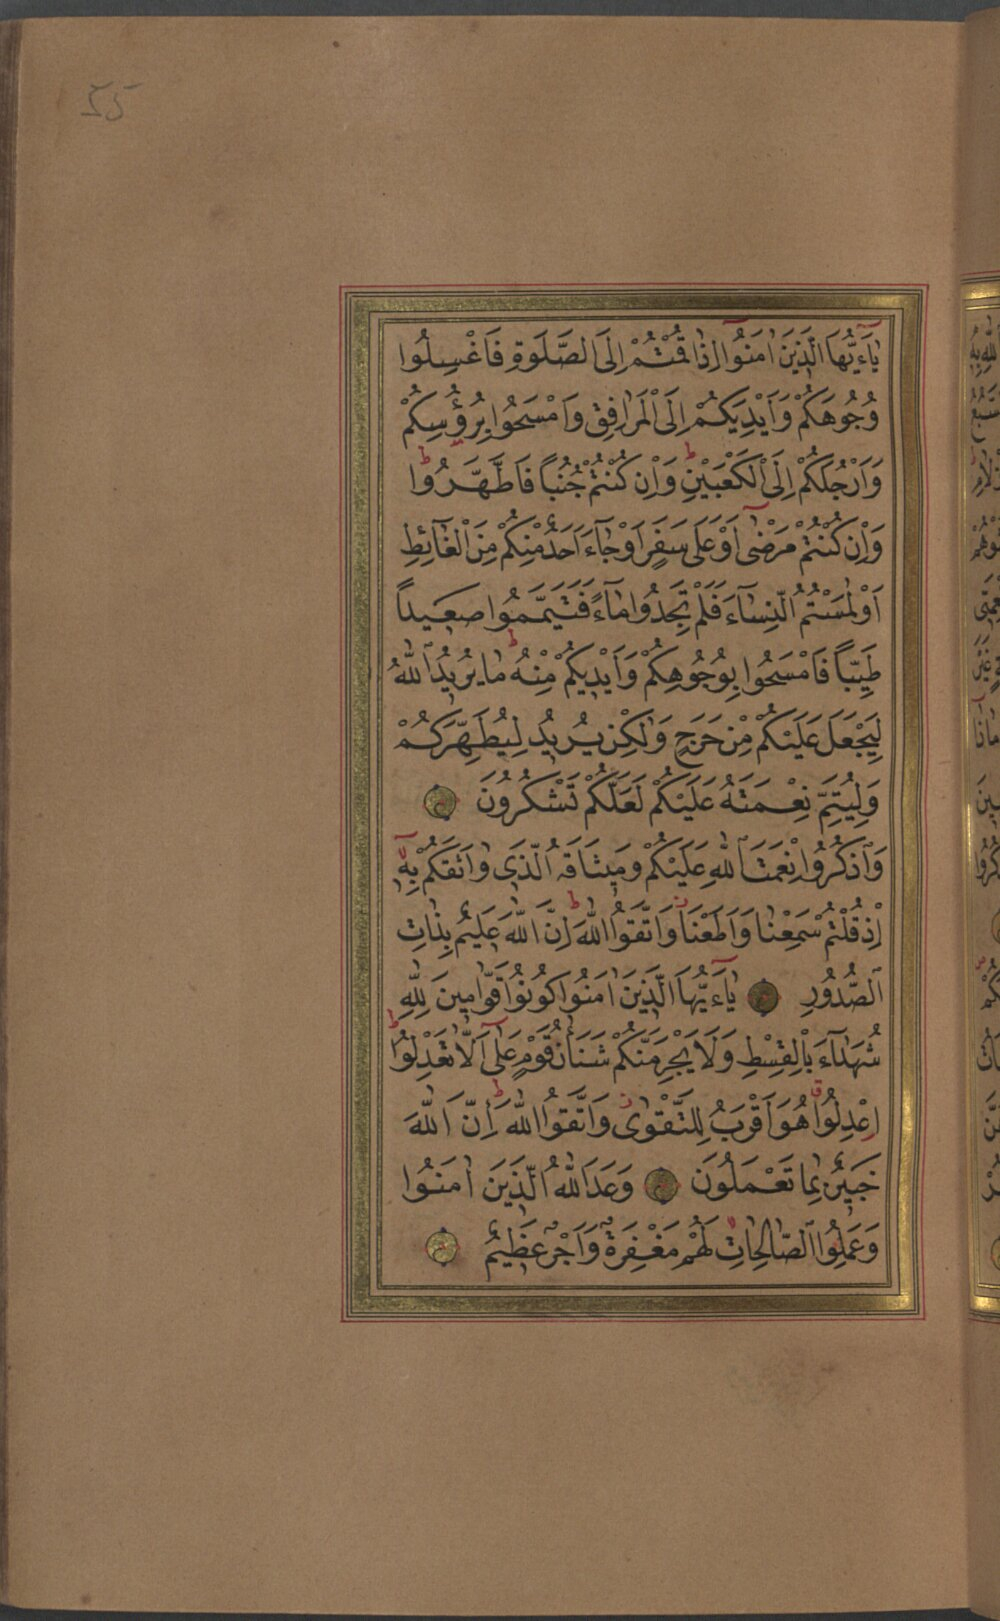 يَاأَيُّهَا الَّذِينَ اٰمَنُوا اِذَا قُمْتُمْ اِلَى الصَّلٰوةِ فَاغْسِلُوا
وُجُوهَكُمْ وَاَيْدِيَكُمْ اِلَى الْمَرَافِقِ وَامْسَحُوا بِرُؤُسِكُمْ
وَاَرْجُلَكُمْ اِلَى الْكَعْبَيْنِ ط وَاِنْ كُنْتُمْ جُنُبًا فَاطَّهَّرُوا ط
وَاِنْ كُنْتُمْ مَرْضٰى اَوْ عَلٰى سَفَرٍ اَوْ جَآءَ اَحَدٌ مِنْكُمْ مِنَ الْغَآئِطِ
اَوْ لٰمَسْتُمُ النِّسَآءَ فَلَمْ تَجِدُوا مَآءً فَتَيَمَّمُوا صَعِيدًا
طَيِّبًا فَامْسَحُوا بِوُجُوهِكُمْ وَاَيْدِيكُمْ مِنْهُ ط مَا يُرِيدُ اللّٰهُ
لِيَجْعَلَ عَلَيْكُمْ مِنْ حَرَجٍ وَلٰكِنْ يُرِيدُ لِيُطَهِّرَكُمْ
وَلِيُتِمَّ نِعْمَتَهُ عَلَيْكُمْ لَعَلَّكُمْ تَشْكُرُونَ
وَاذْكُرُوا نِعْمَتَ اللّٰهِ عَلَيْكُمْ وَمِيثَاقَهُ الَّذِى وَاثَقَكُمْ بِهٖ
اِذْ قُلْتُمْ سَمِعْنَا وَاَطَعْنَا ز وَاتَّقُوا اللّٰهَ ط اِنَّ اللّٰهَ عَلِيمٌ بِذَاتِ
الصُّدُورِ يَاأَيُّهَا الَّذِينَ اٰمَنُوا كُونُوا قَوَّامِينَ لِلّٰهِ
شُهَدَآءَ بِالْقِسْطِ وَلَا يَجْرِمَنَّكُمْ شَنَاٰنُ قَوْمٍ عَلٰى اَلَّا تَعْدِلُوا ط
اِعْدِلُوا ق هُوَ اَقْرَبُ لِلتَّقْوٰى ز وَاتَّقُوا اللّٰهَ ط اِنَّ اللّٰهَ
خَبِيرٌ بِمَا تَعْمَلُونَ وَعَدَ اللّٰهُ الَّذِينَ اٰمَنُوا
وَعَمِلُوا الصَّالِحَاتِ لا لَهُمْ مَغْفِرَةٌ وَاَجْرٌ عَظِيمٌ